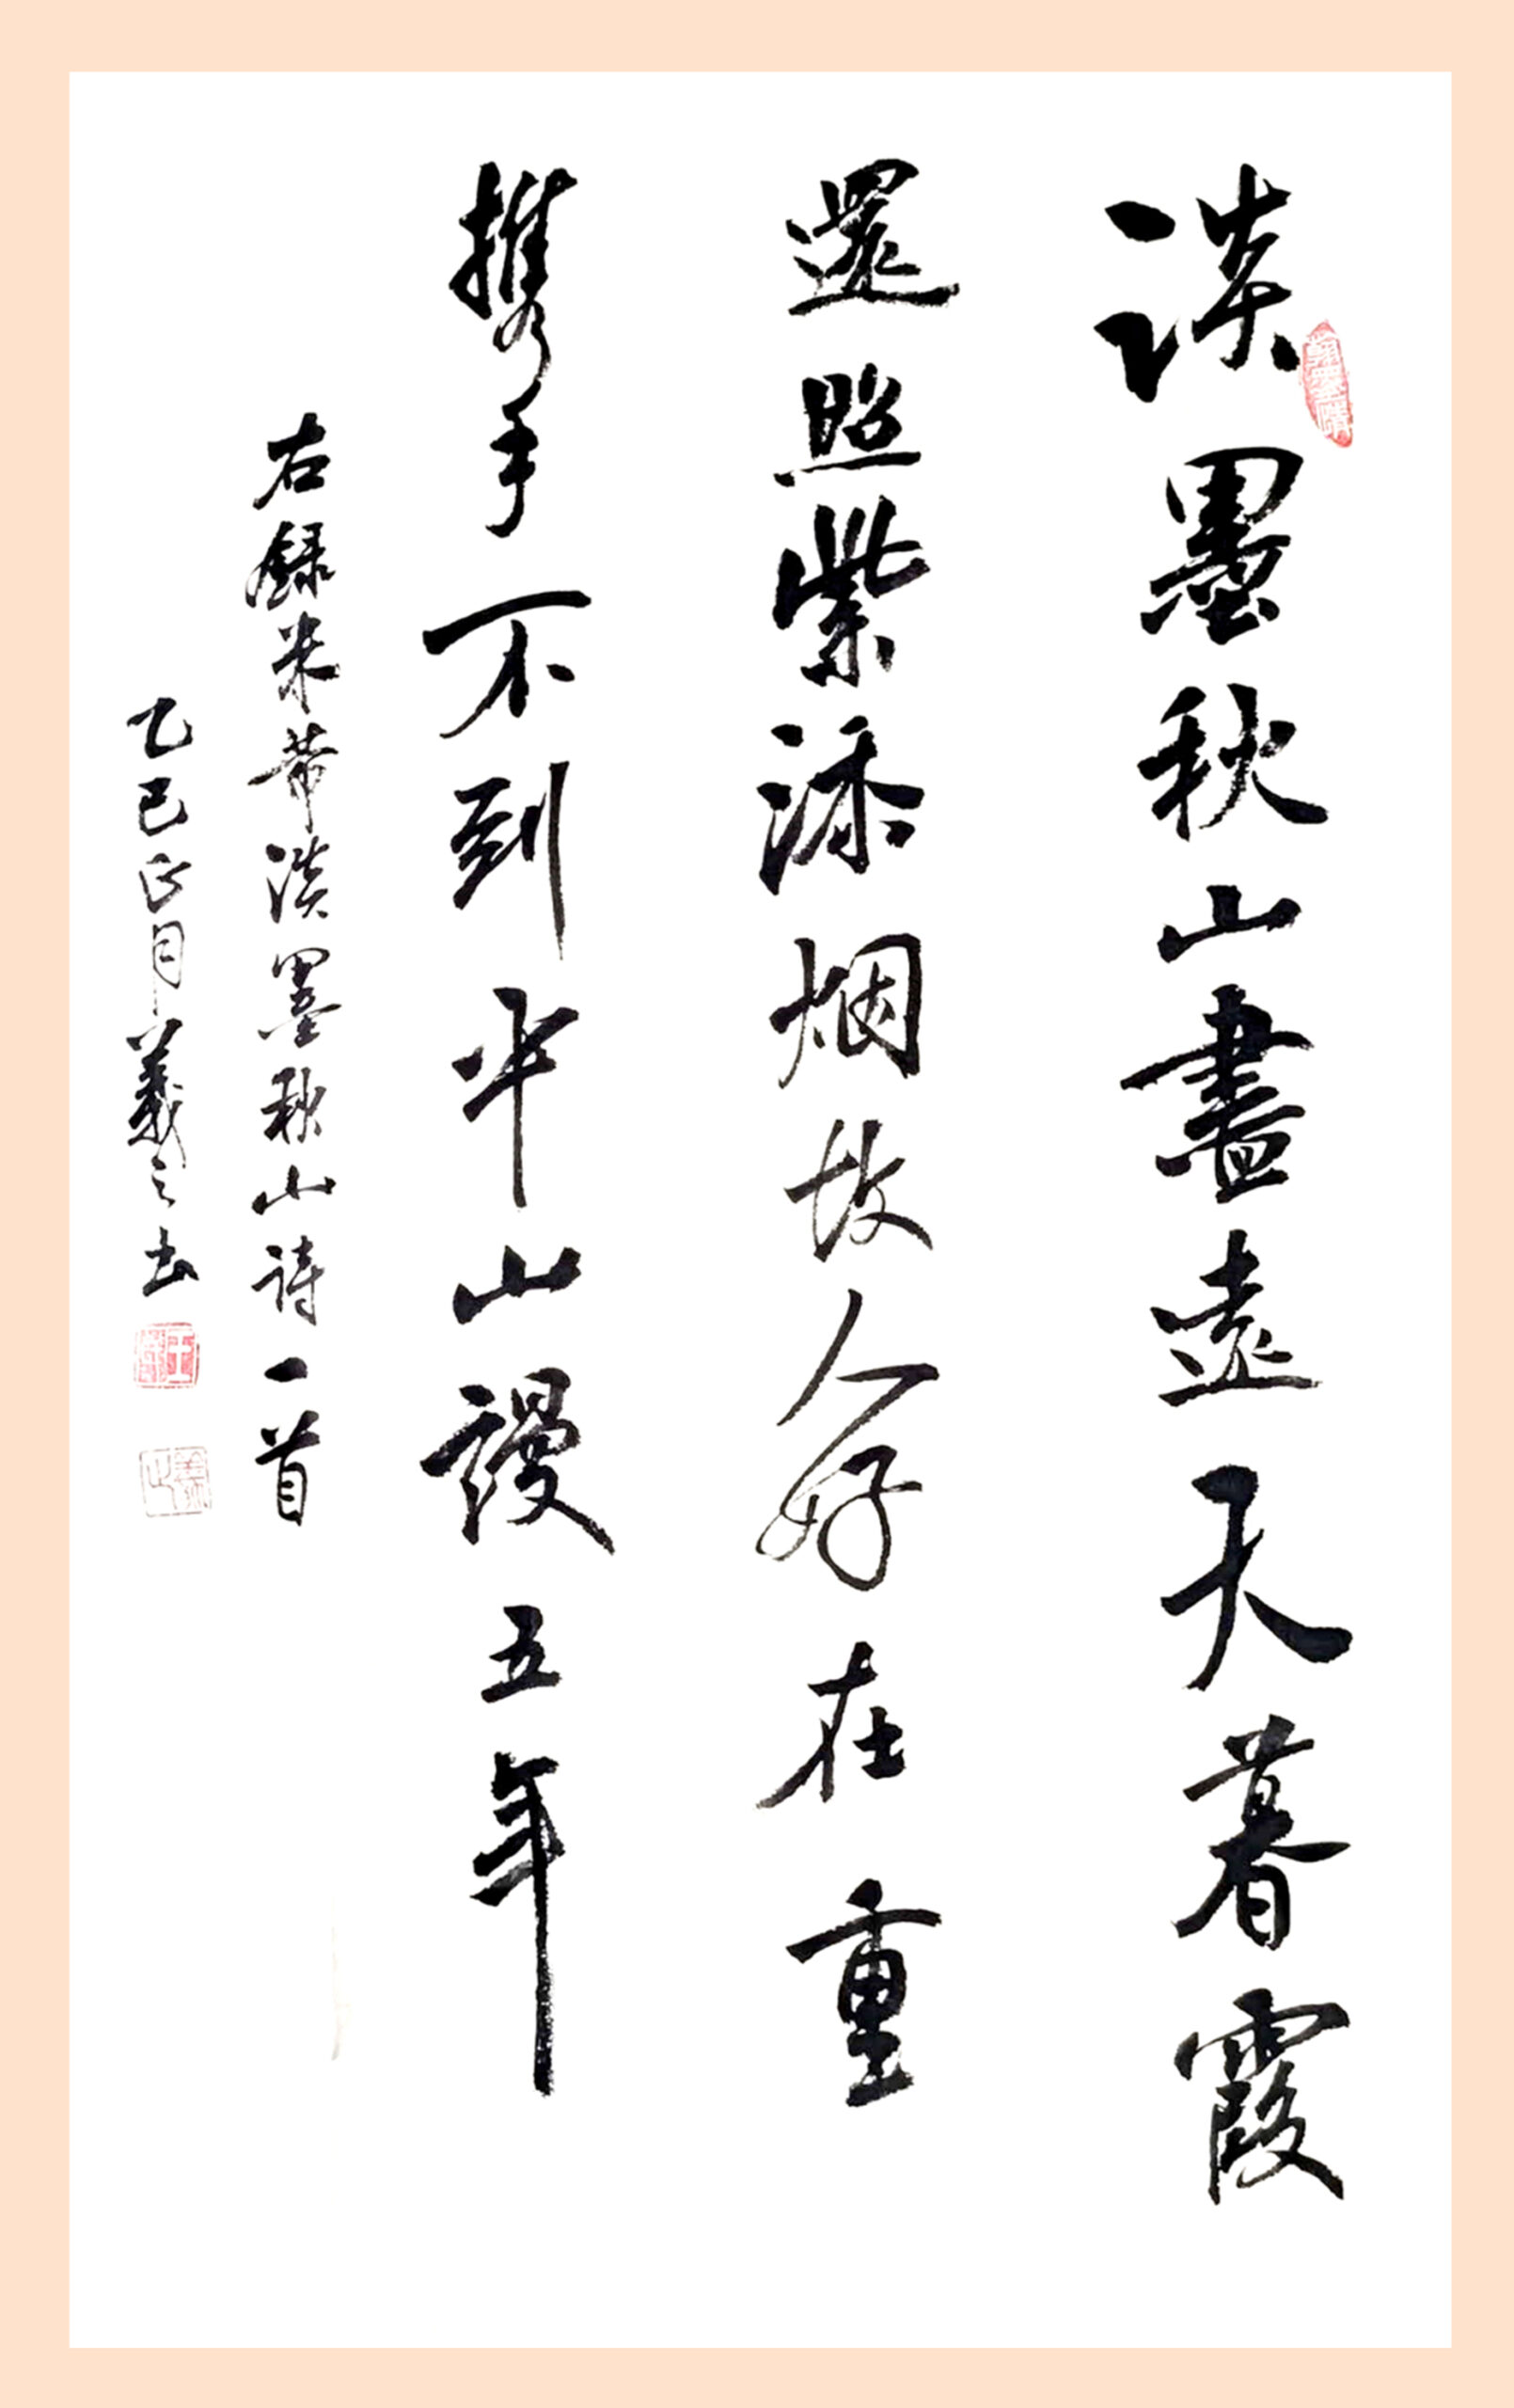 淡墨秋山盡遠天暮霞
還照紫添烟故人好在重
携手不到平山謾五年
右録米芾淡墨秋山诗一首
乙巳正月羲之书